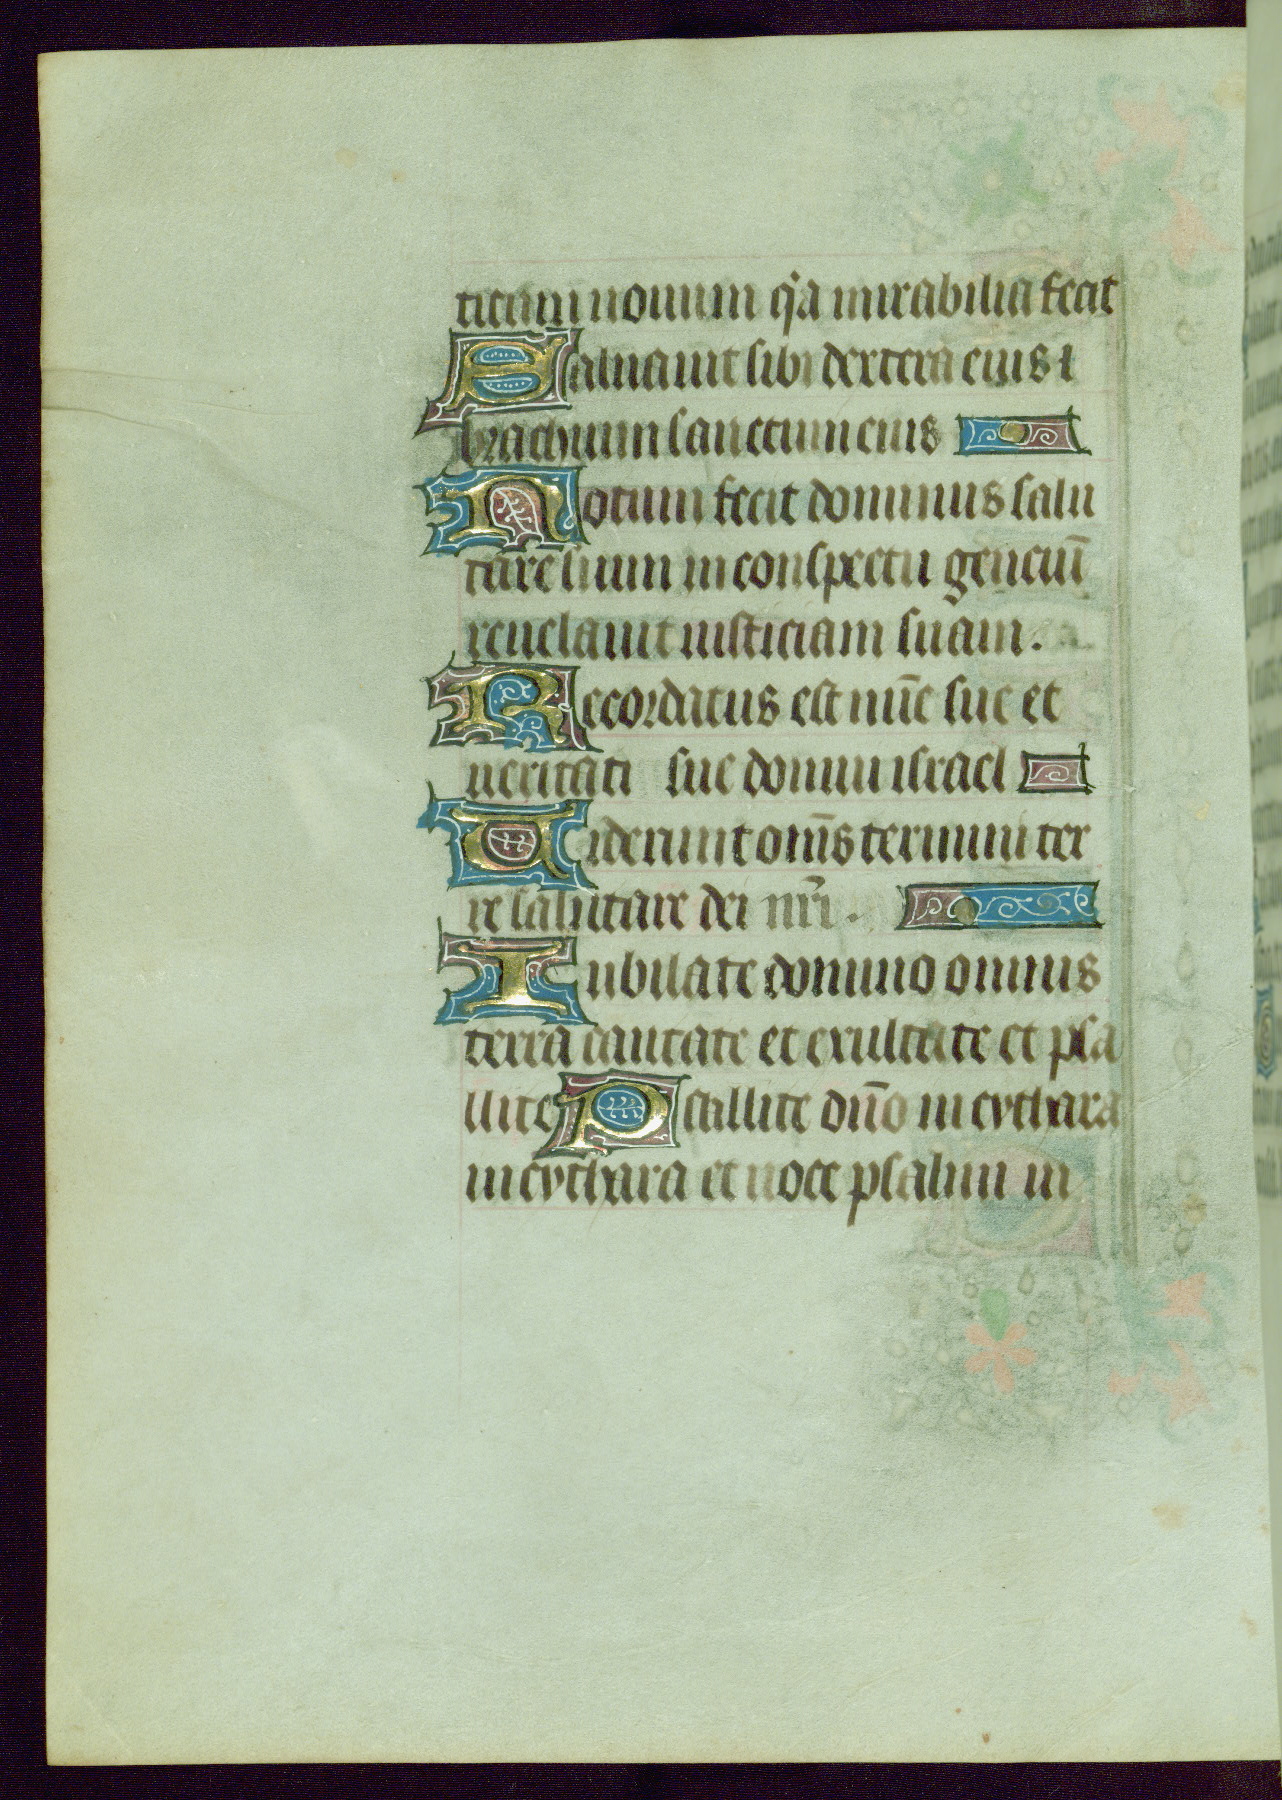 ticum nouum q̇a mirabilia fecit
Saluauit sibi dextera eius ⁊
brachium sanctum eius
Notum fecit dominus salu
tare suum in conspectu genciū
reuelauit iusticiam suam.
Recordatus est mīe sue et
ueritati sue domui israel
Uiderunt om̄s termini ter
re salutare dei nr̄i.
Iubilate domino omnis
terra cantate et exultate et psa
llite Psallite dn̄o in cythara
in cythara et uoce psalmi in